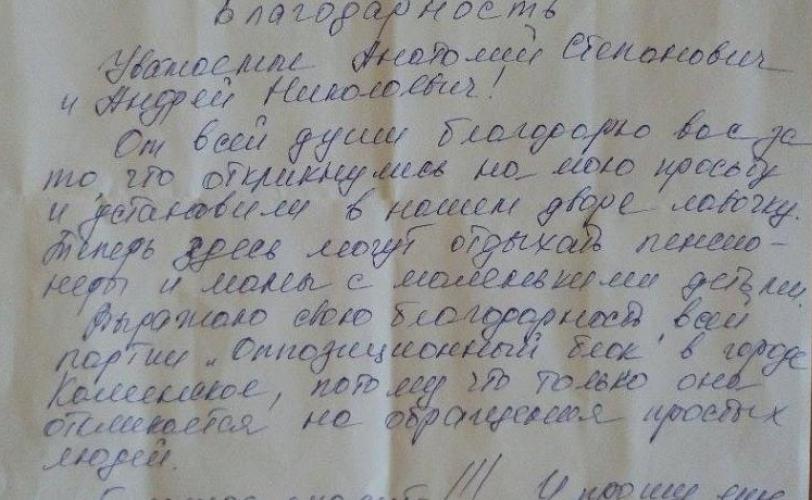 Благодарность
Уважаемые Анатолий Степанович
и Андрей Николаевич!
От всей души благодарю вас за
то, что откликнулись на мою просьбу
и установили в нашем дворе лавочку.
Теперь здесь могут отдыхать пенсио-
неры и мамы с маленькими детьми.
Выражаю свою благодарность всей
партии „Оппозиционный блок" в городе
Каменское, потому что только она
откликается на обращения простых
людей.
!!! И прошу еще